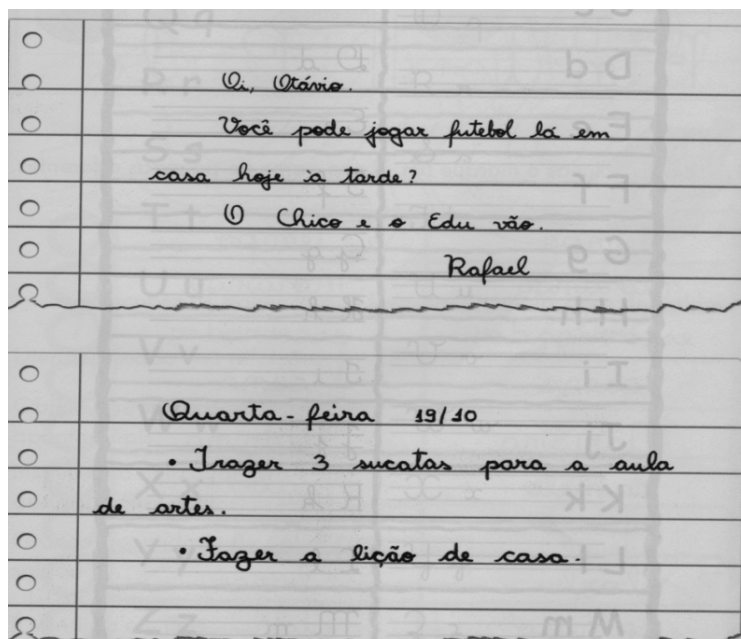 Oi, Otávio.
Você pode jogar futebol lá em
casa hoje à tarde?
O Chico e o Edu vão.
Rafael
Quarta-feira 19/10
• Trazer 3 sucatas para a aula
de artes.
• Fazer a lição de casa.